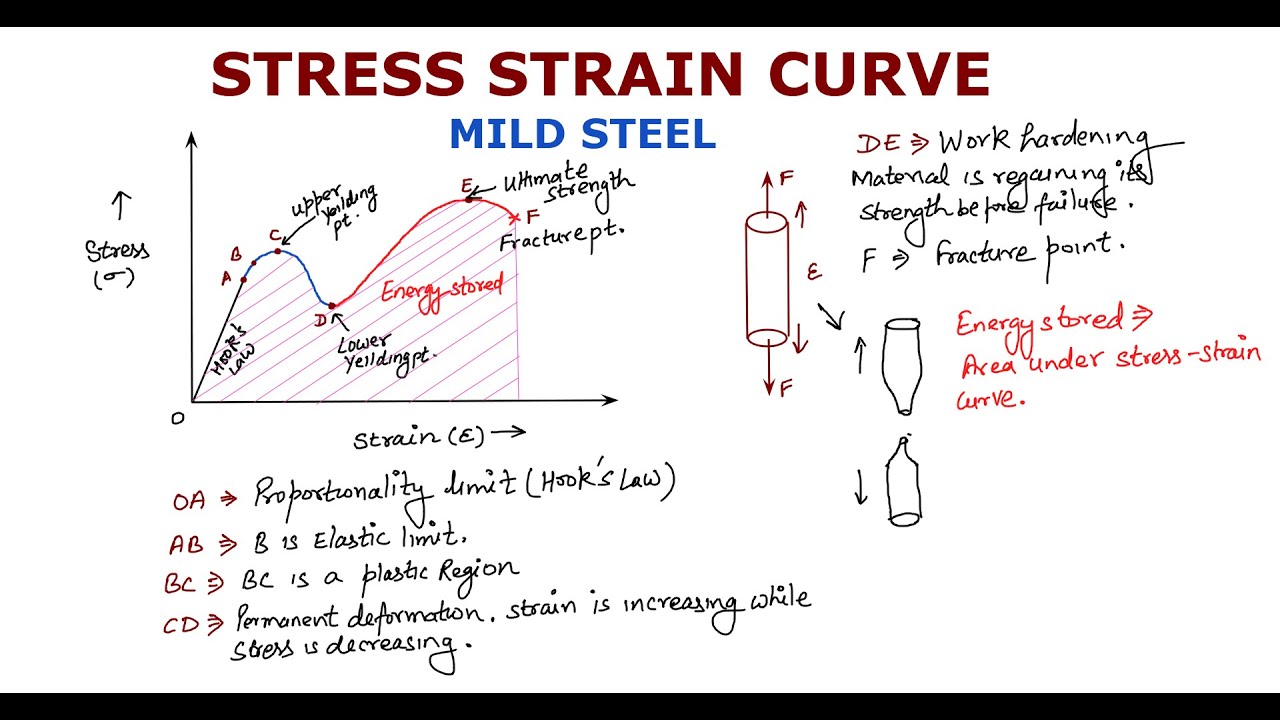 STRESS STRAIN CURVE
MILD STEEL
Stress
(σ)
A
B
C
upper
yeilding
pt.
D
Lower
yeilding pt.
E
Ultimate
strength
F
Fracture pt.
Energy stored
Hook's
Law
O
Strain (ε) →
OA ⇒ Proportionality limit (Hook's Law)
AB ⇒ B is Elastic limit.
BC ⇒ BC is a plastic Region
CD ⇒ Permanent deformation. strain is increasing while
stress is decreasing.
F
ε
F
DE ⇒ Work hardening
Material is regaining its
strength before failure.
F ⇒ Fracture point.
Energy stored ⇒
Area under stress-strain
curve.